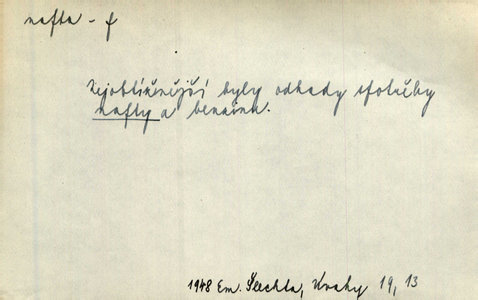 nafta - f
Nejobtížnější byly odhady spotřeby
nafty a benzinu.
1948 Em. Šlechta, Kruhy 19, 13